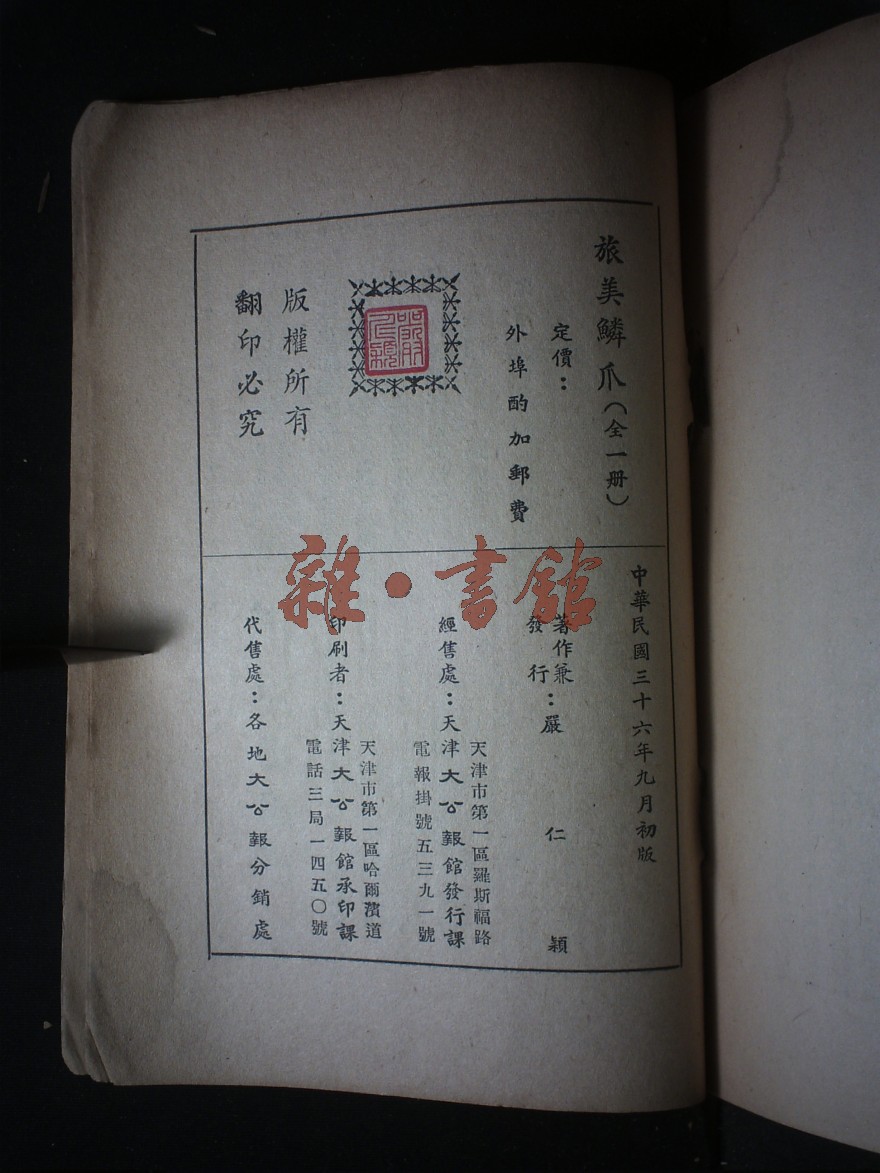 旅美鱗爪（全一册）
定價：
外埠酌加郵費
嚴仁穎
版權所有
翻印必究
中華民國三十六年九月初版
著作兼發行：嚴仁穎
天津市第一區羅斯福路
經售處：天津大公報館發行課
電報掛號五三九一號
天津市第一區哈爾濱道
印刷者：天津大公報館承印課
電話三局一四五〇號
代售處：各地大公報分銷處
雜·書館